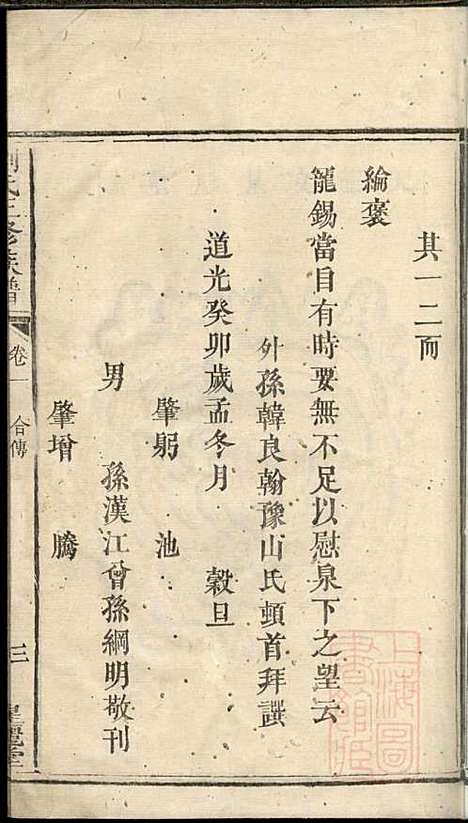 其一二而
綸褒
寵錫當自有時要無不足以慰泉下之望云
外孫韓良翰豫山氏頓首拜譔
道光癸卯歲孟冬月　穀旦
肇躬　池
男　孫漢江曾孫綱明敬刊
肇增　騰
氏三修族譜　卷一　合傳　三
上海圖書館藏